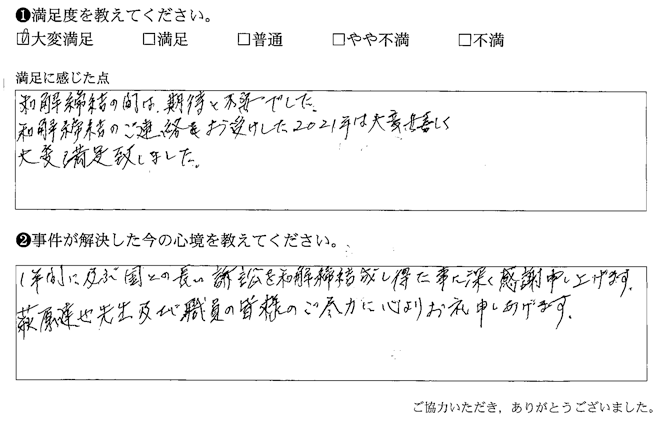 ❶満足度を教えてください。
☑大変満足 □満足 □普通 □やや不満 □不満
満足に感じた点
和解締結の間は、期待と不安でした。
和解締結のご連絡をお受けした2021年は大変喜しく
大変満足致しました。
❷事件が解決した今の心境を教えてください。
1年間に及ぶ国との長い訴訟を和解締結成し得た事に深く感謝申し上げます。
萩原達也先生及び職員の皆様のご尽力に心よりお礼申しあげます。
ご協力いただき，ありがとうございました。